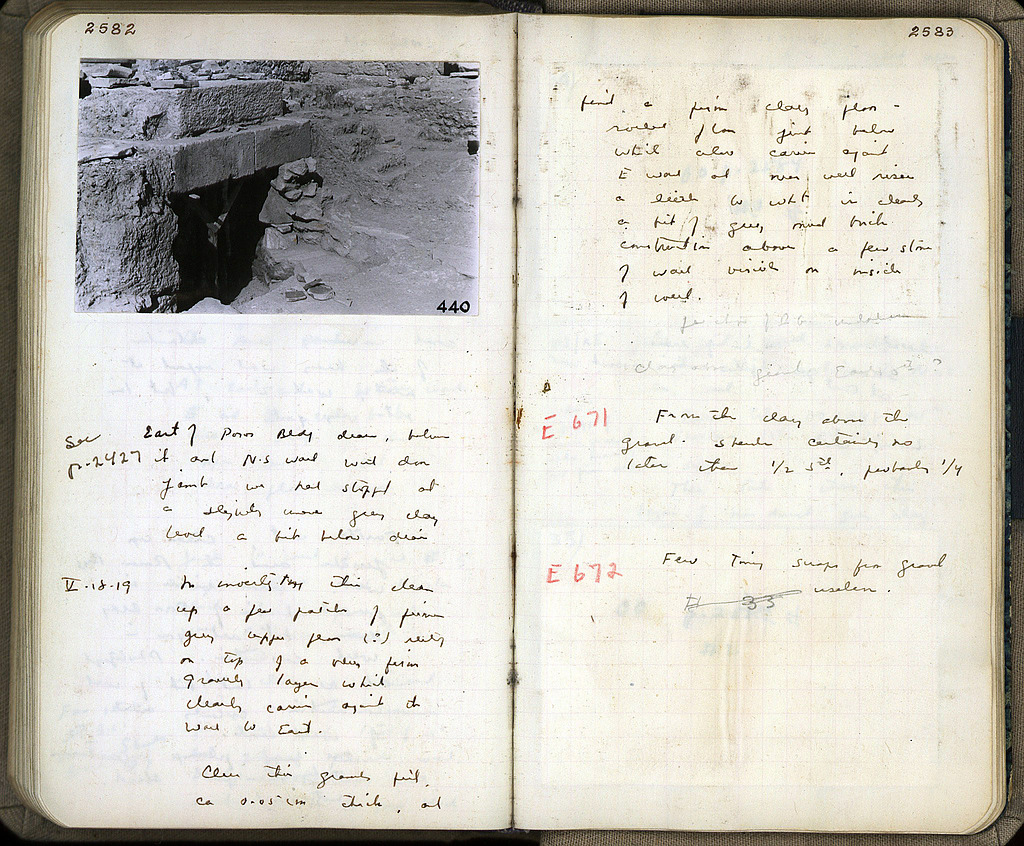 2582
440
See
p. 2427
East of Poros Bldg drain, below
it and N-S wall with door
jamb we had stopped at
a slightly more grey clay
level a bit below drain
V-18-19
To investigate this clean
up a few patches of firm
grey upper floor (?) resting
on top of a very firm
gravelly layer which
clearly carries against the
wall to East.
Clear this gravelly fill,
ca 0.05 m thick, and
2583
find a firm clay floor
below
which also carries against
E wall and over well rises
a little to what is clearly
a bit of grey mud brick
construction above a few stones
of wall visible on inside
of well.
E 671
From the clay above the
gravel. Sherds certainly no
later than 1/2 5th, probably 1/4
E 672
Few tiny scraps from gravel
33 useless.